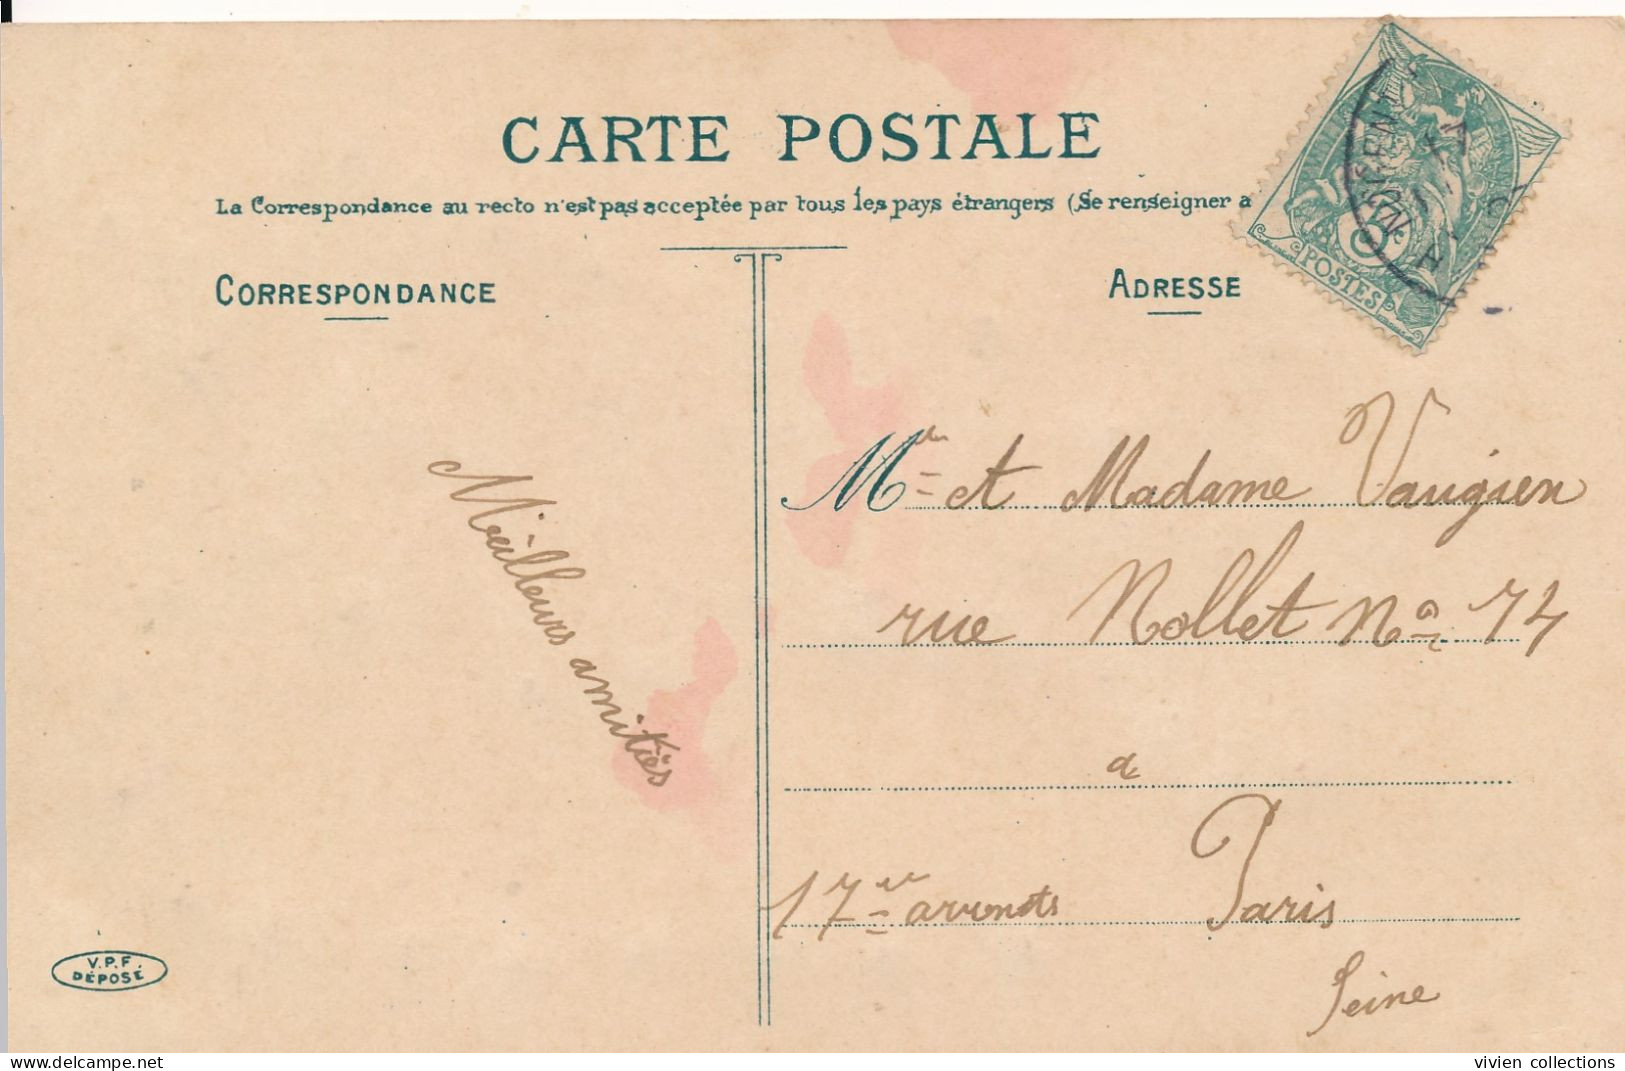 CARTE POSTALE
La Correspondance au recto n'est pas acceptée par tous les pays étrangers (Se renseigner a
CORRESPONDANCE
ADRESSE
5c
POSTES
Meilleurs amitiés
Mr et Madame Vaugien
rue Nollet No 74
a
Paris
17e arronots
Seine
V.P.F.
DÉPOSÉ
www.delcampe.net
vivien collections